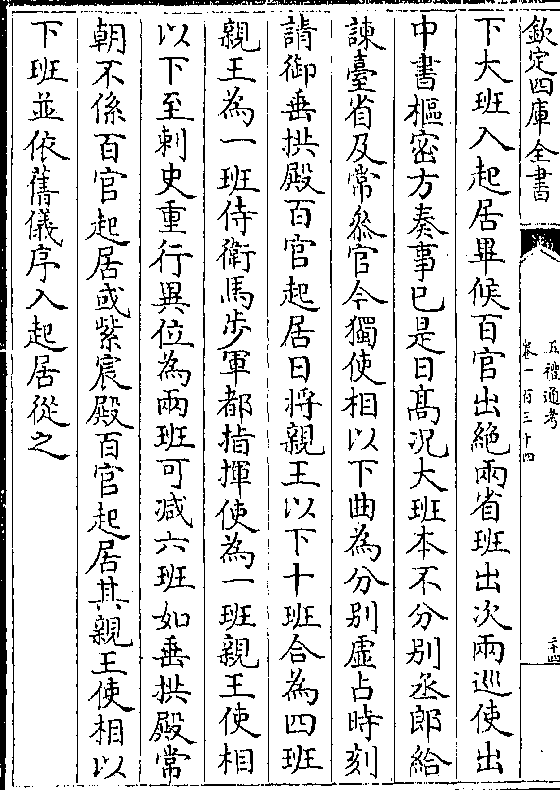 欽定四庫全書
五禮通考
卷一百三十四
二十四
下大班入起居畢候百官出絶兩省班出次兩巡使出
中書樞密方奏事已是日髙況大班本不分别丞郎給
諫臺省及常叅官今獨使相以下曲為分别虚占時刻
請御垂拱殿百官起居日將親王以下十班合為四班
親王為一班侍衛馬步軍都指揮使為一班親王使相
以下至刺史重行異位為兩班可减六班如垂拱殿常
朝不係百官起居或紫宸殿百官起居其親王使相以
下班並依舊儀序入起居從之